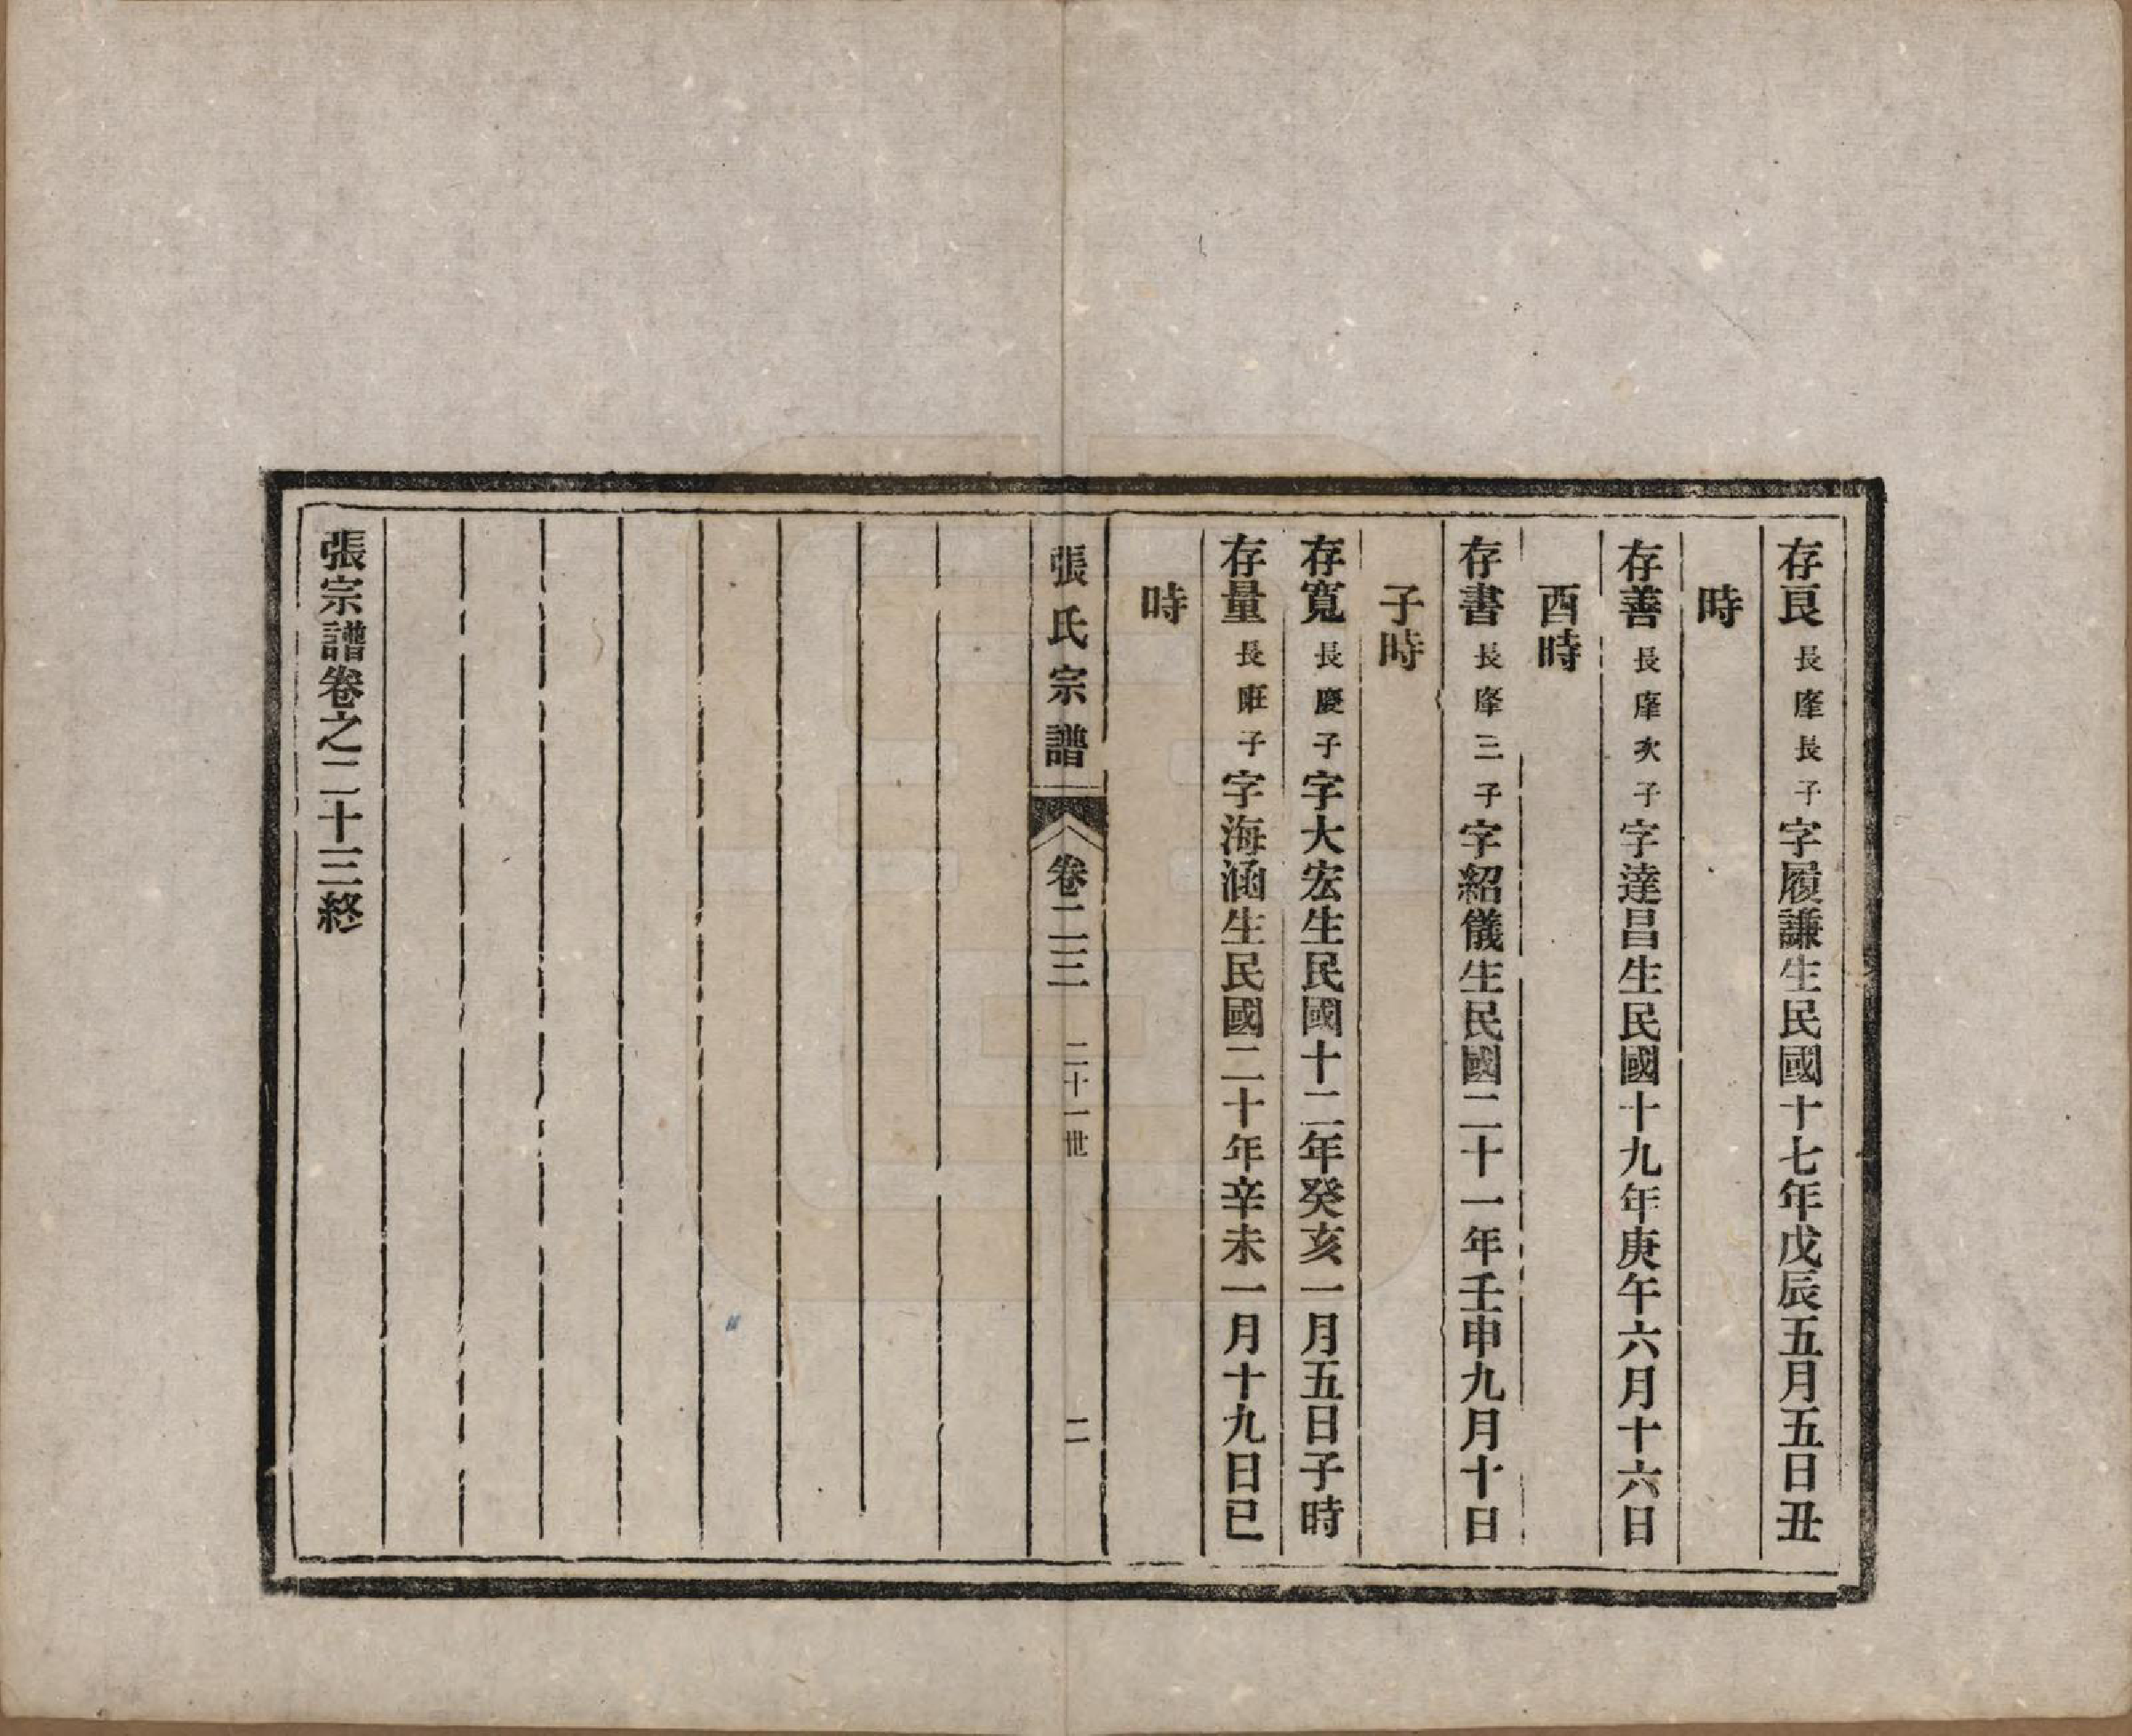 存良長㡖長子字履謙生民國十七年戊辰五月五日丑
時
存善長㡖次子字達昌生民國十九年庚午六月十六日
酉時
存書長㡖三子字紹儀生民國二十一年壬申九月十日
子時
存寬長慶子字大宏生民國十二年癸亥一月五日子時
存量長庄子字海涵生民國二十年辛未一月十九日巳
時
張氏宗譜 卷二三 二十一世 二
張宗譜卷之二十三終